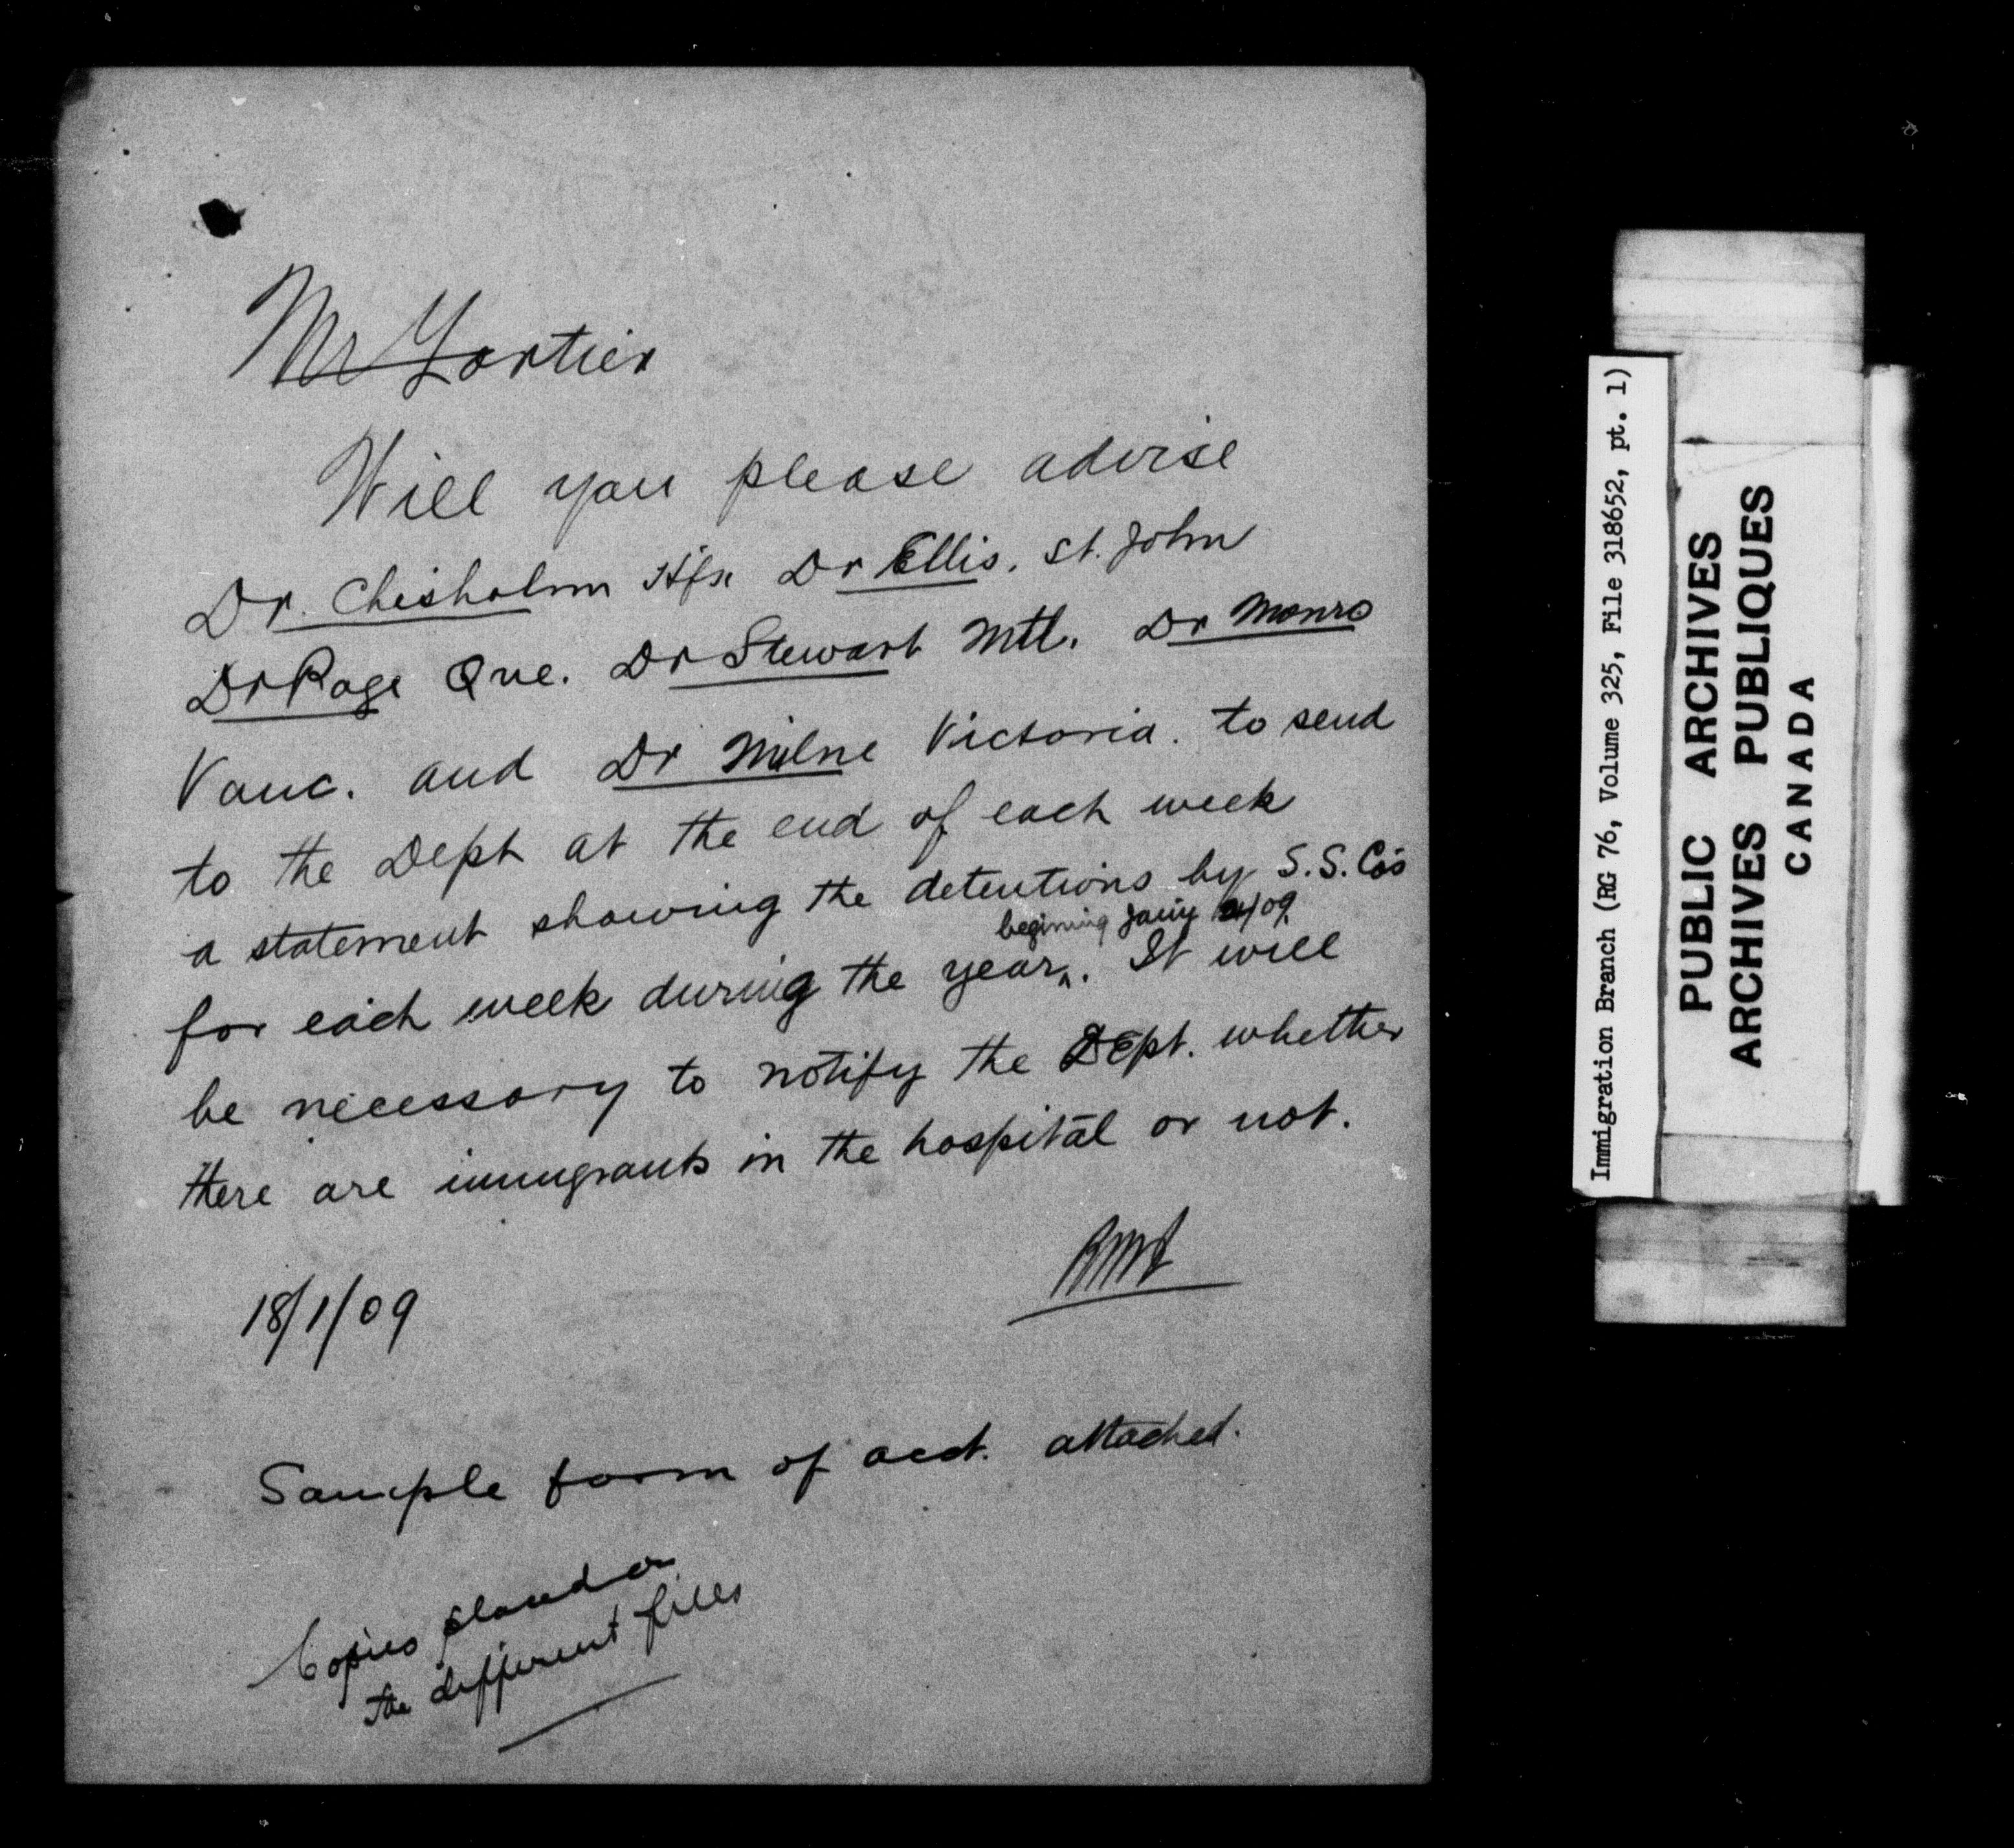 Mr Fortier
Will you please advise
Dr. Chisholm Hfx Dr Ellis. St. John
Dr Page Que. Dr Stewart Mtl. Dr Monro
Vanc. and Dr Milne Victoria. to send
to the Dept at the end of each week
a statement showing the detentions by S.S. Co's
begining Jany /09
for each week during the year. It will
be necessary to notify the Dept. whether
there are immigrants in the hospital or not.
18/1/09
Sample form of acct. attached.
Copies placed on
the different files
Immigration Branch (RG 76, Volume 325, File 318652, pt. 1)
PUBLIC ARCHIVES
ARCHIVES PUBLIQUES
CANADA